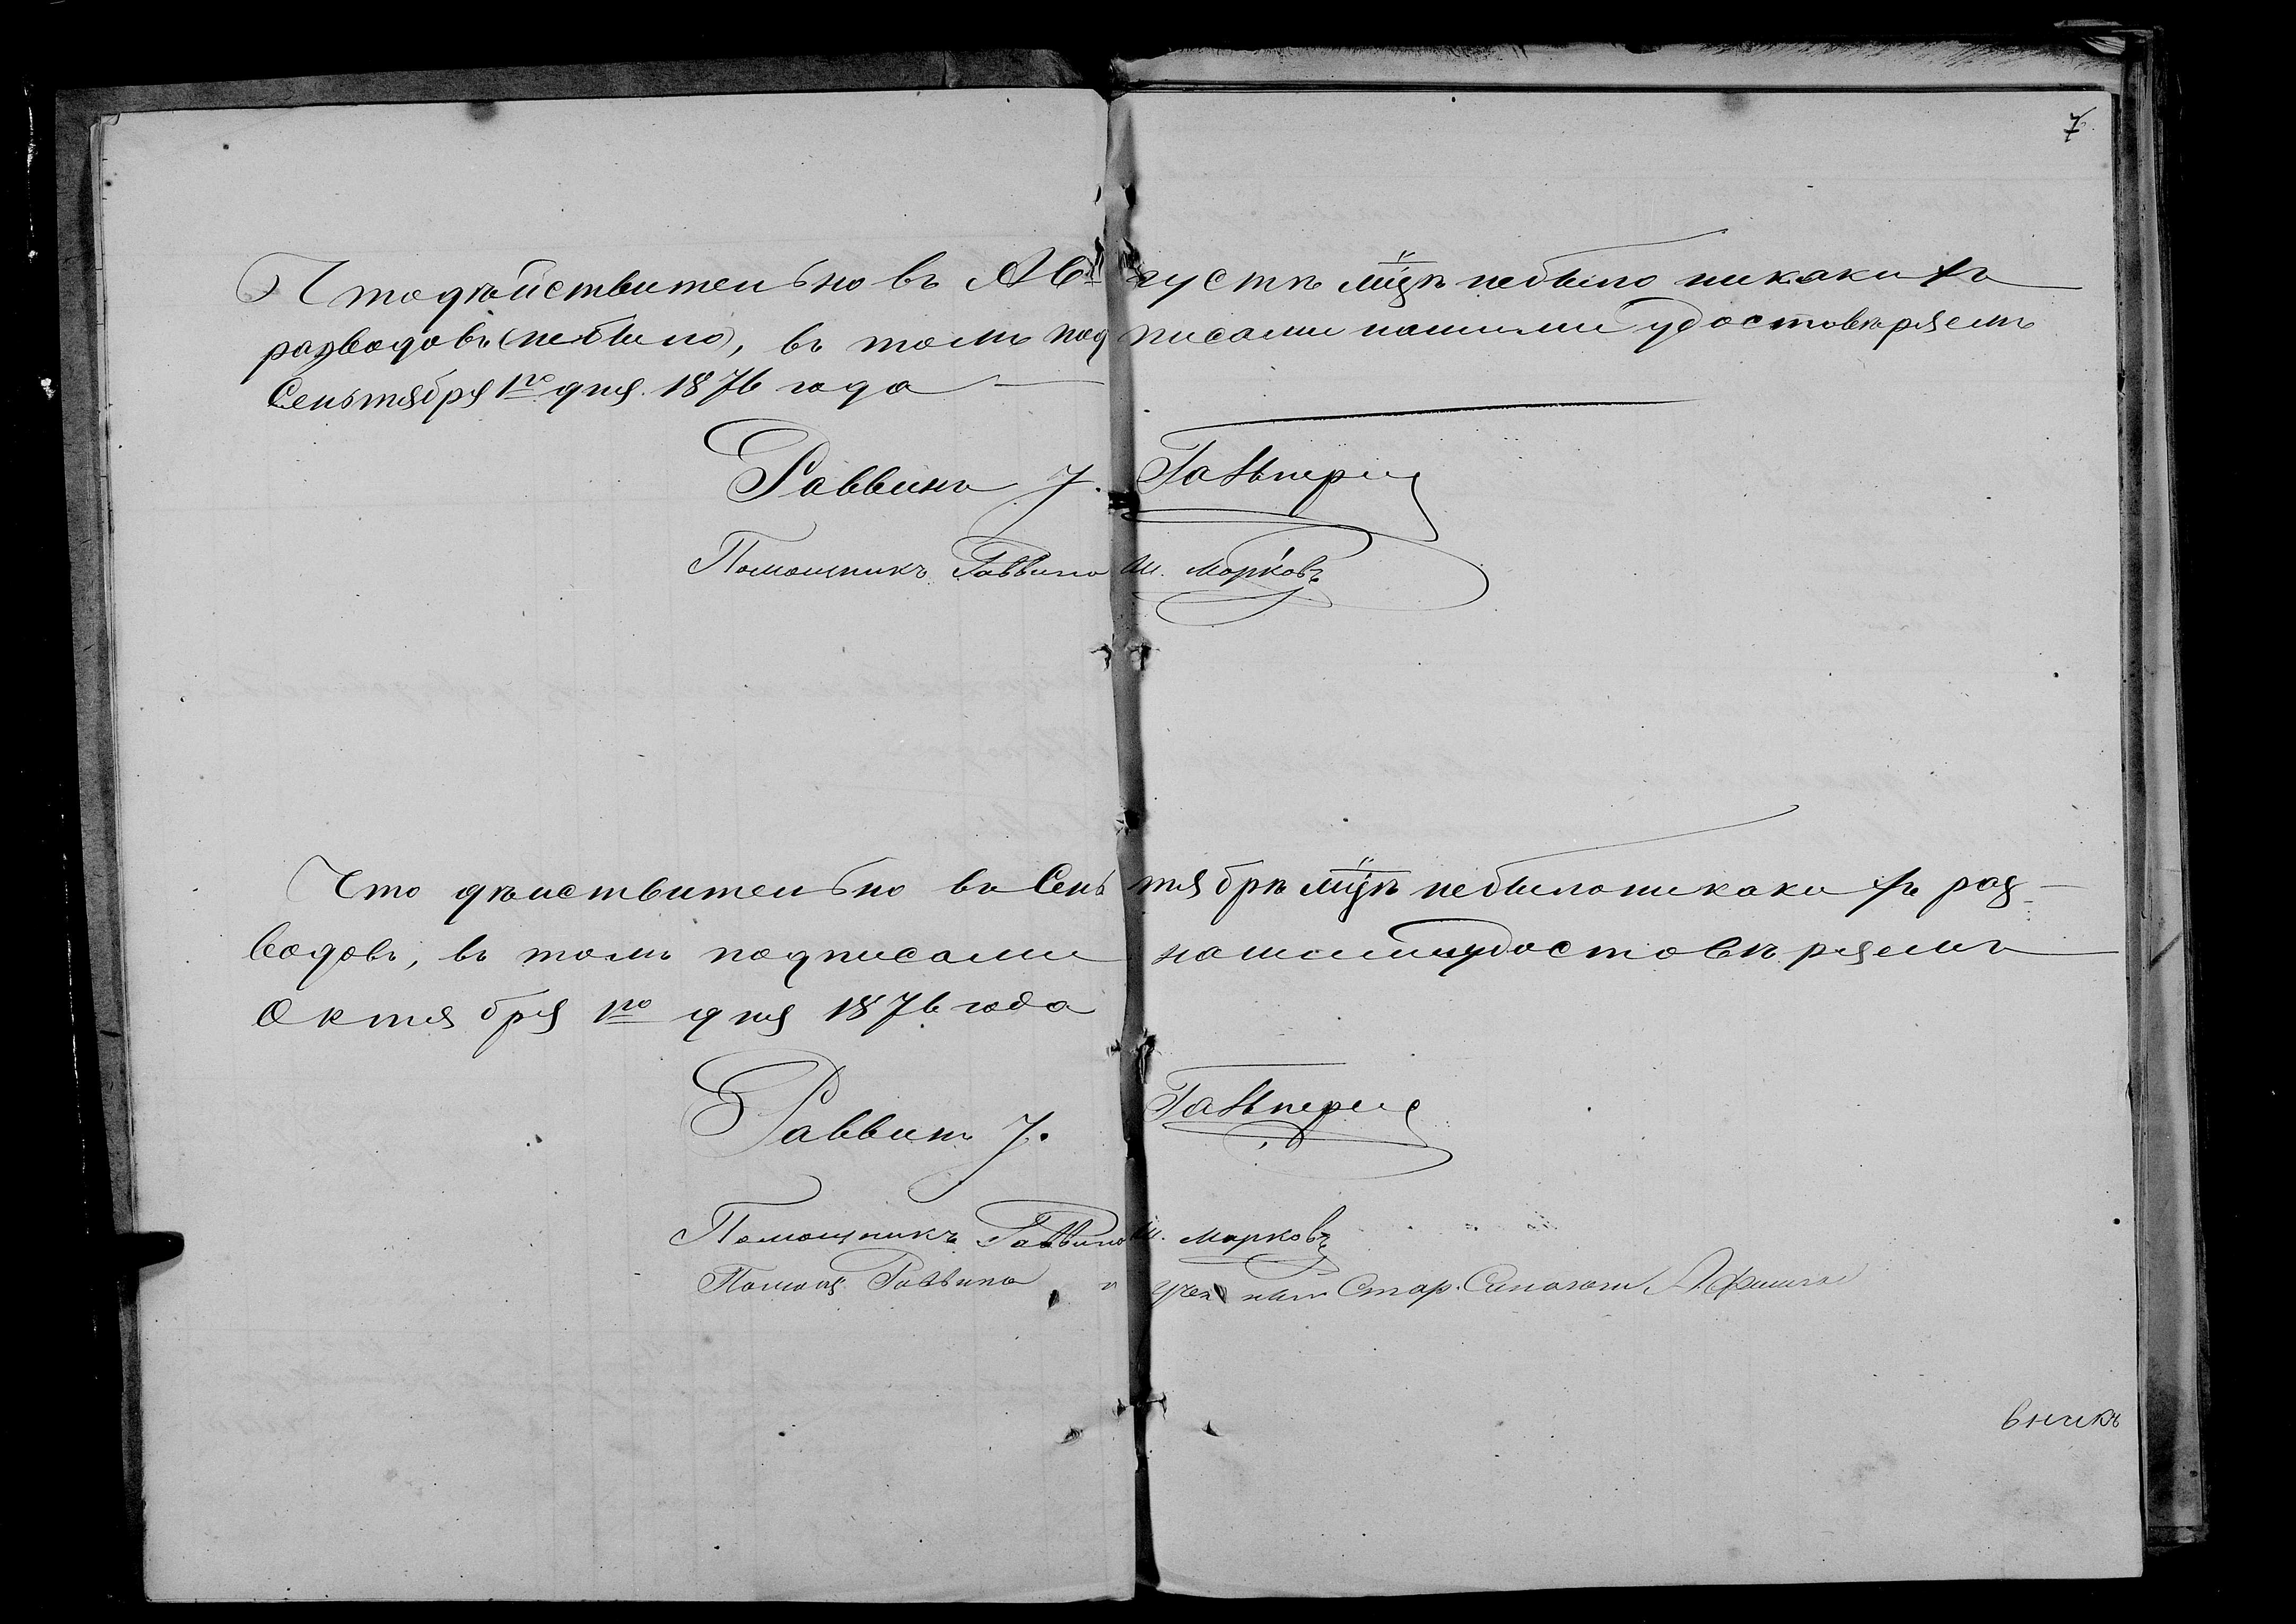 7
Что дѣйствительно въ Августѣ мцѣ небыло никакихъ
разводовъ (небыло), въ томъ подписами нашими удостовѣряемъ
Сеньтября 1го дня 1876 года
Раввинъ У. Гальперин
Помощникъ Раввина Ш. Марковъ
Что дѣиствительно въ Сеньтябрѣ мцѣ небыло никакихъ раз-
водовъ, въ томъ подписами нашими удостовѣряемъ
Октября 1го дня 1876 года
Раввинъ У. Гальперин
Помощникъ Раввина Ш. Марковъ
Помощ Раввина и Стар. Синагоги
вникъ